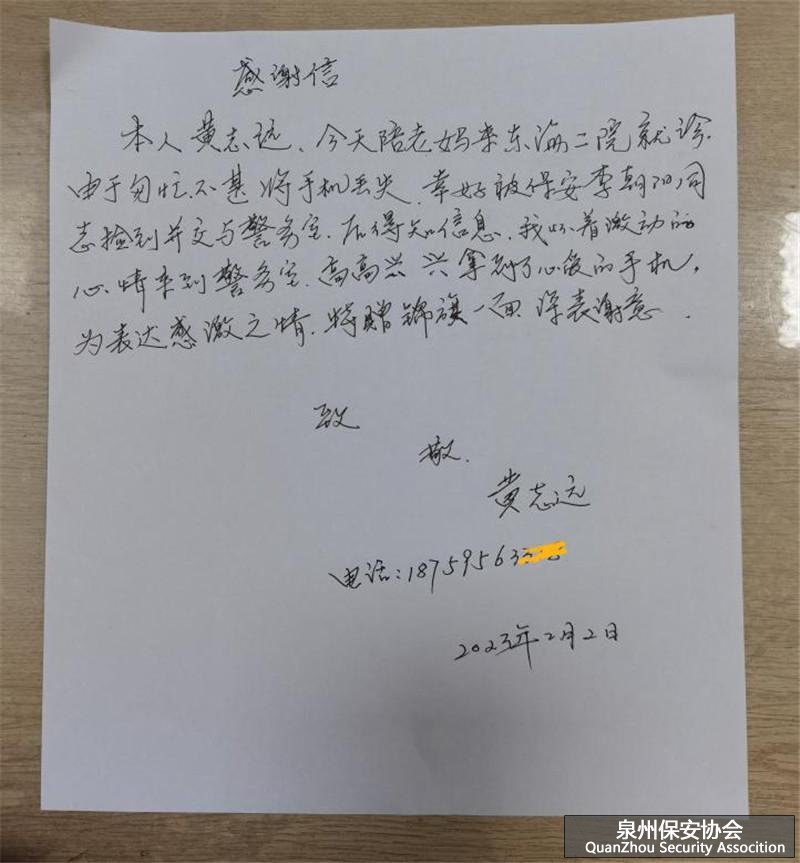 感谢信
本人黄志远、今天陪老妈来东海二院就诊.
由于匆忙.不甚将手机丢失.幸好被保安李朝阳同
志捡到并交与警务室.后得知信息.我怀着激动的
心情来到警务室.高高兴兴拿到了心爱的手机,
为表达感激之情.特赠锦旗一面 深表谢意.
致
敬.
黄志远
电话:18759563
2023年2月2日
泉州保安协会
QuanZhou Security Assocition